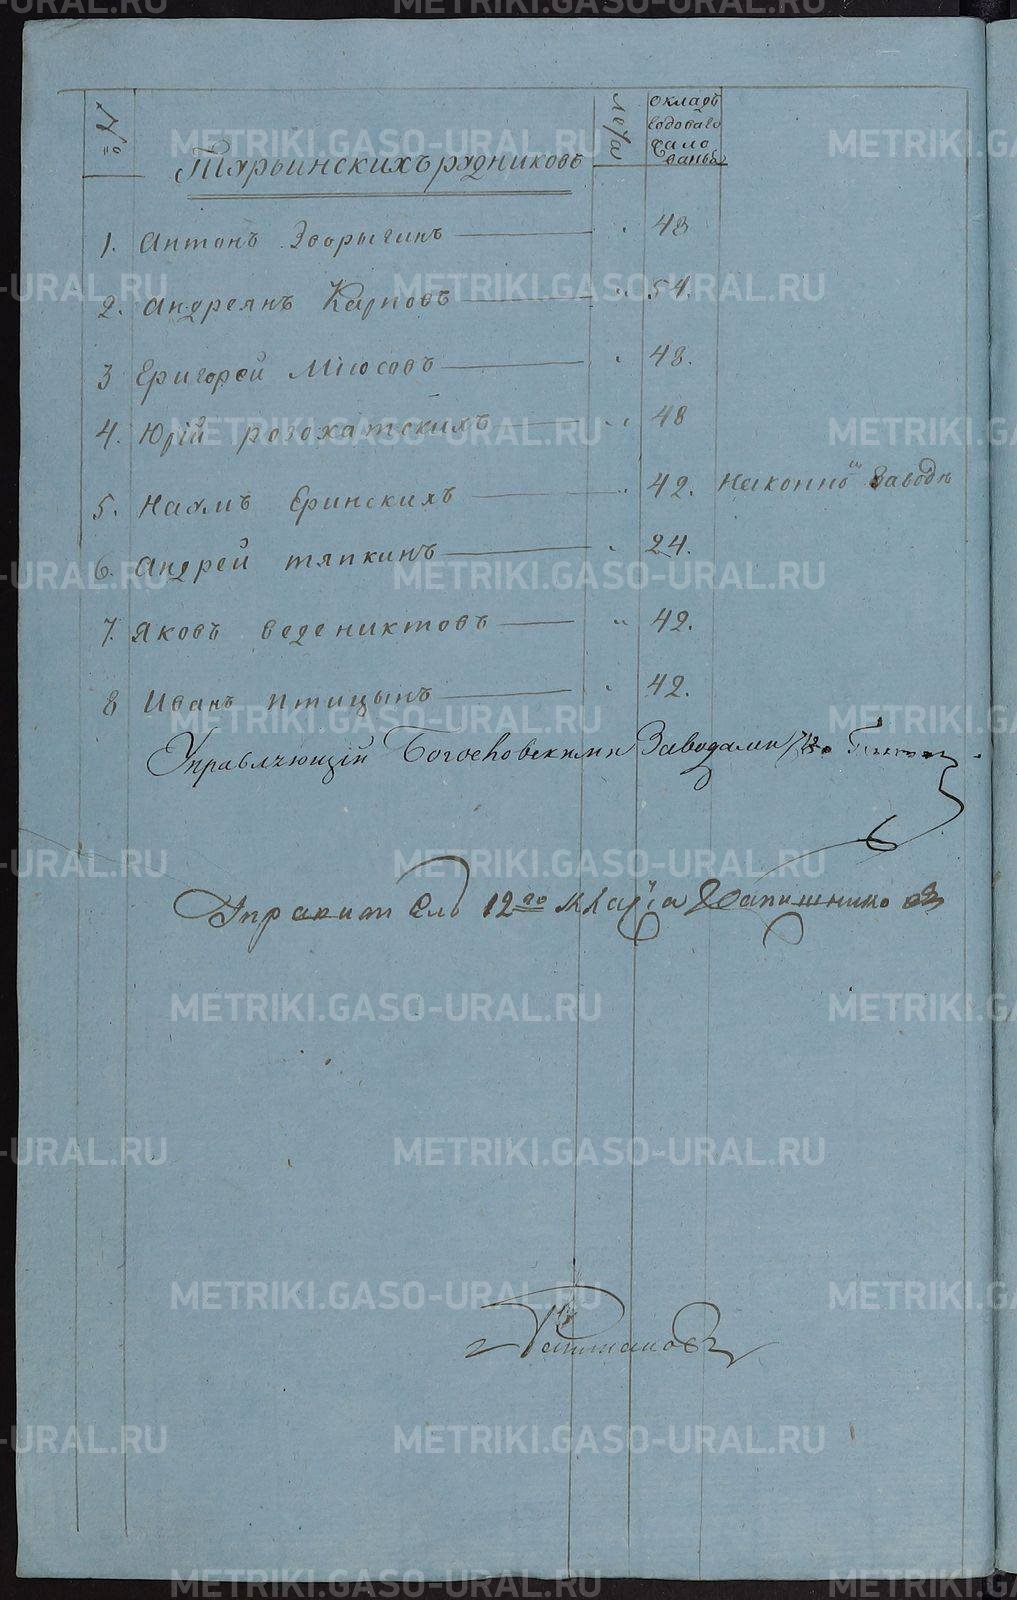 №
Турьинскихъ рудниковъ
лета
окладъ
годоваго
жало
ванья
1. Антонъ Зворыгинъ 48
2. Андреянъ Карповъ 54.
3 Григорей Мїюсовъ 48.
4. Юрїй розохатскихъ 48
5. Наумъ Еринскихъ 42. На конно заводе
6. Андрей тяпкинъ 24.
7. Яковъ ведениктовъ 42.
8 Иванъ птицынъ 42.
Управляющїй Богословскими Заводами
Управитель 12го класса
METRIKI.GASO-URAL.RU